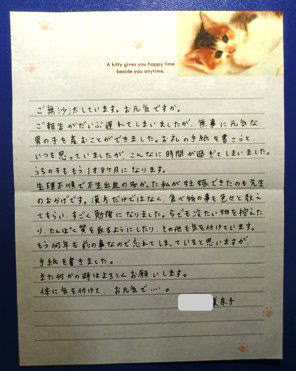 A kitty gives you happy time
beside you anytime.
ご無沙汰しています。お元気ですか。
ご報告がだいぶ遅れてしまいましたが、無事に元気な
男の子を産むことができました。お礼の手紙を書こうと、
いつも思っていましたが、こんなに時間が過ぎてしまいました。
うちの子ももう1才8ヶ月になります。
生理不順で不正出血のあった私が妊娠できたのも先生
のおかげです。漢方だけではなく、食べ物の事も色々と教え
てもらい、すごく勉強になりました。今でも冷たい物を控えた
り、たんぱく質を取るようにしたり、その他も気を付けています。
もう何年も前の事なので忘れてしまっていると思いますが、
手紙を書きました。
また何かの時はよろしくお願いします。
体に気を付けて、お元気で…。
奈子